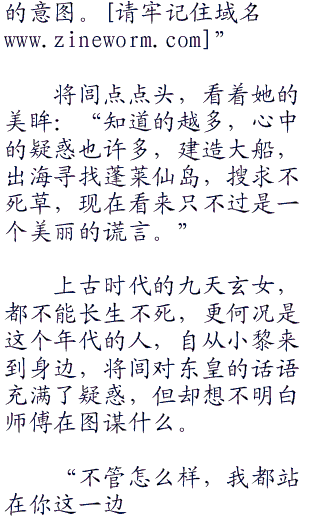 的意图。[请牢记住域名
www.zineworm.com]”
将闾点点头，看着她的
美眸：“知道的越多，心中
的疑惑也许多，建造大船，
出海寻找蓬莱仙岛，搜求不
死草，现在看来只不过是一
个美丽的谎言。”
上古时代的九天玄女，
都不能长生不死，更何况是
这个年代的人，自从小黎来
到身边，将闾对东皇的话语
充满了疑惑，但却想不明白
师傅在图谋什么。
“不管怎么样，我都站
在你这一边